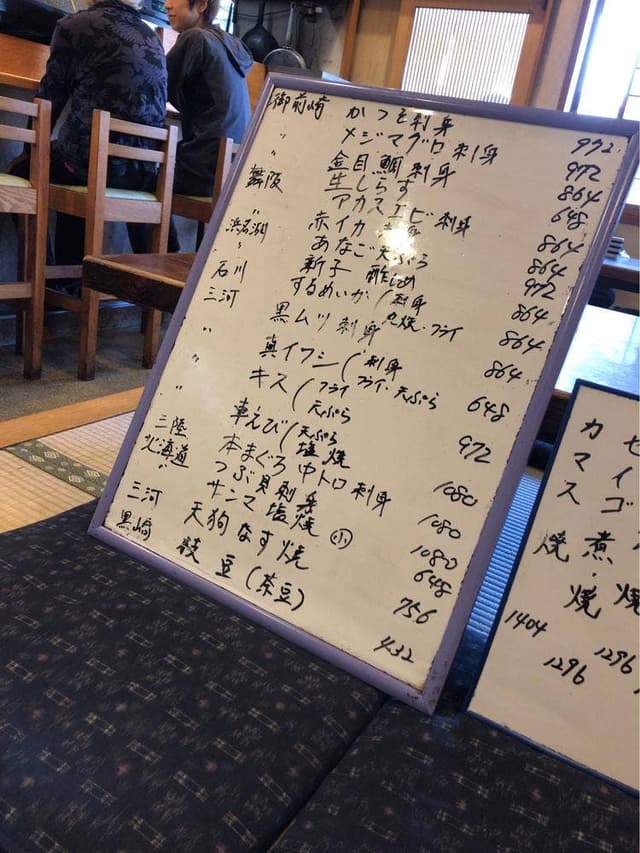 御前崎 かつを刺身 972
〃 メジマグロ刺身 972
〃 金目鯛刺身 864
舞阪 生しらす 648
〃 アカスエビ刺身 864
浜名湖 赤イカ 864
〃 あなご天ぷら 972
石川 新子 酢じめ 864
三河 するめいか/刺身 丸焼・フライ 864
〃 黒ムツ刺身 864
〃 真イワシ/刺身 フライ・天ぷら 648
〃 キス/フライ 天ぷら 972
三陸 車えび/天ぷら 塩焼 1080
北海道 本まぐろ中トロ刺身 1080
〃 つぶ貝刺身 1080
サンマ塩焼 小 648
三河 天狗なす焼 756
黒崎 枝豆(茶豆) 432
カマス焼 1404
セイゴ煮・焼 1296
焼 1296